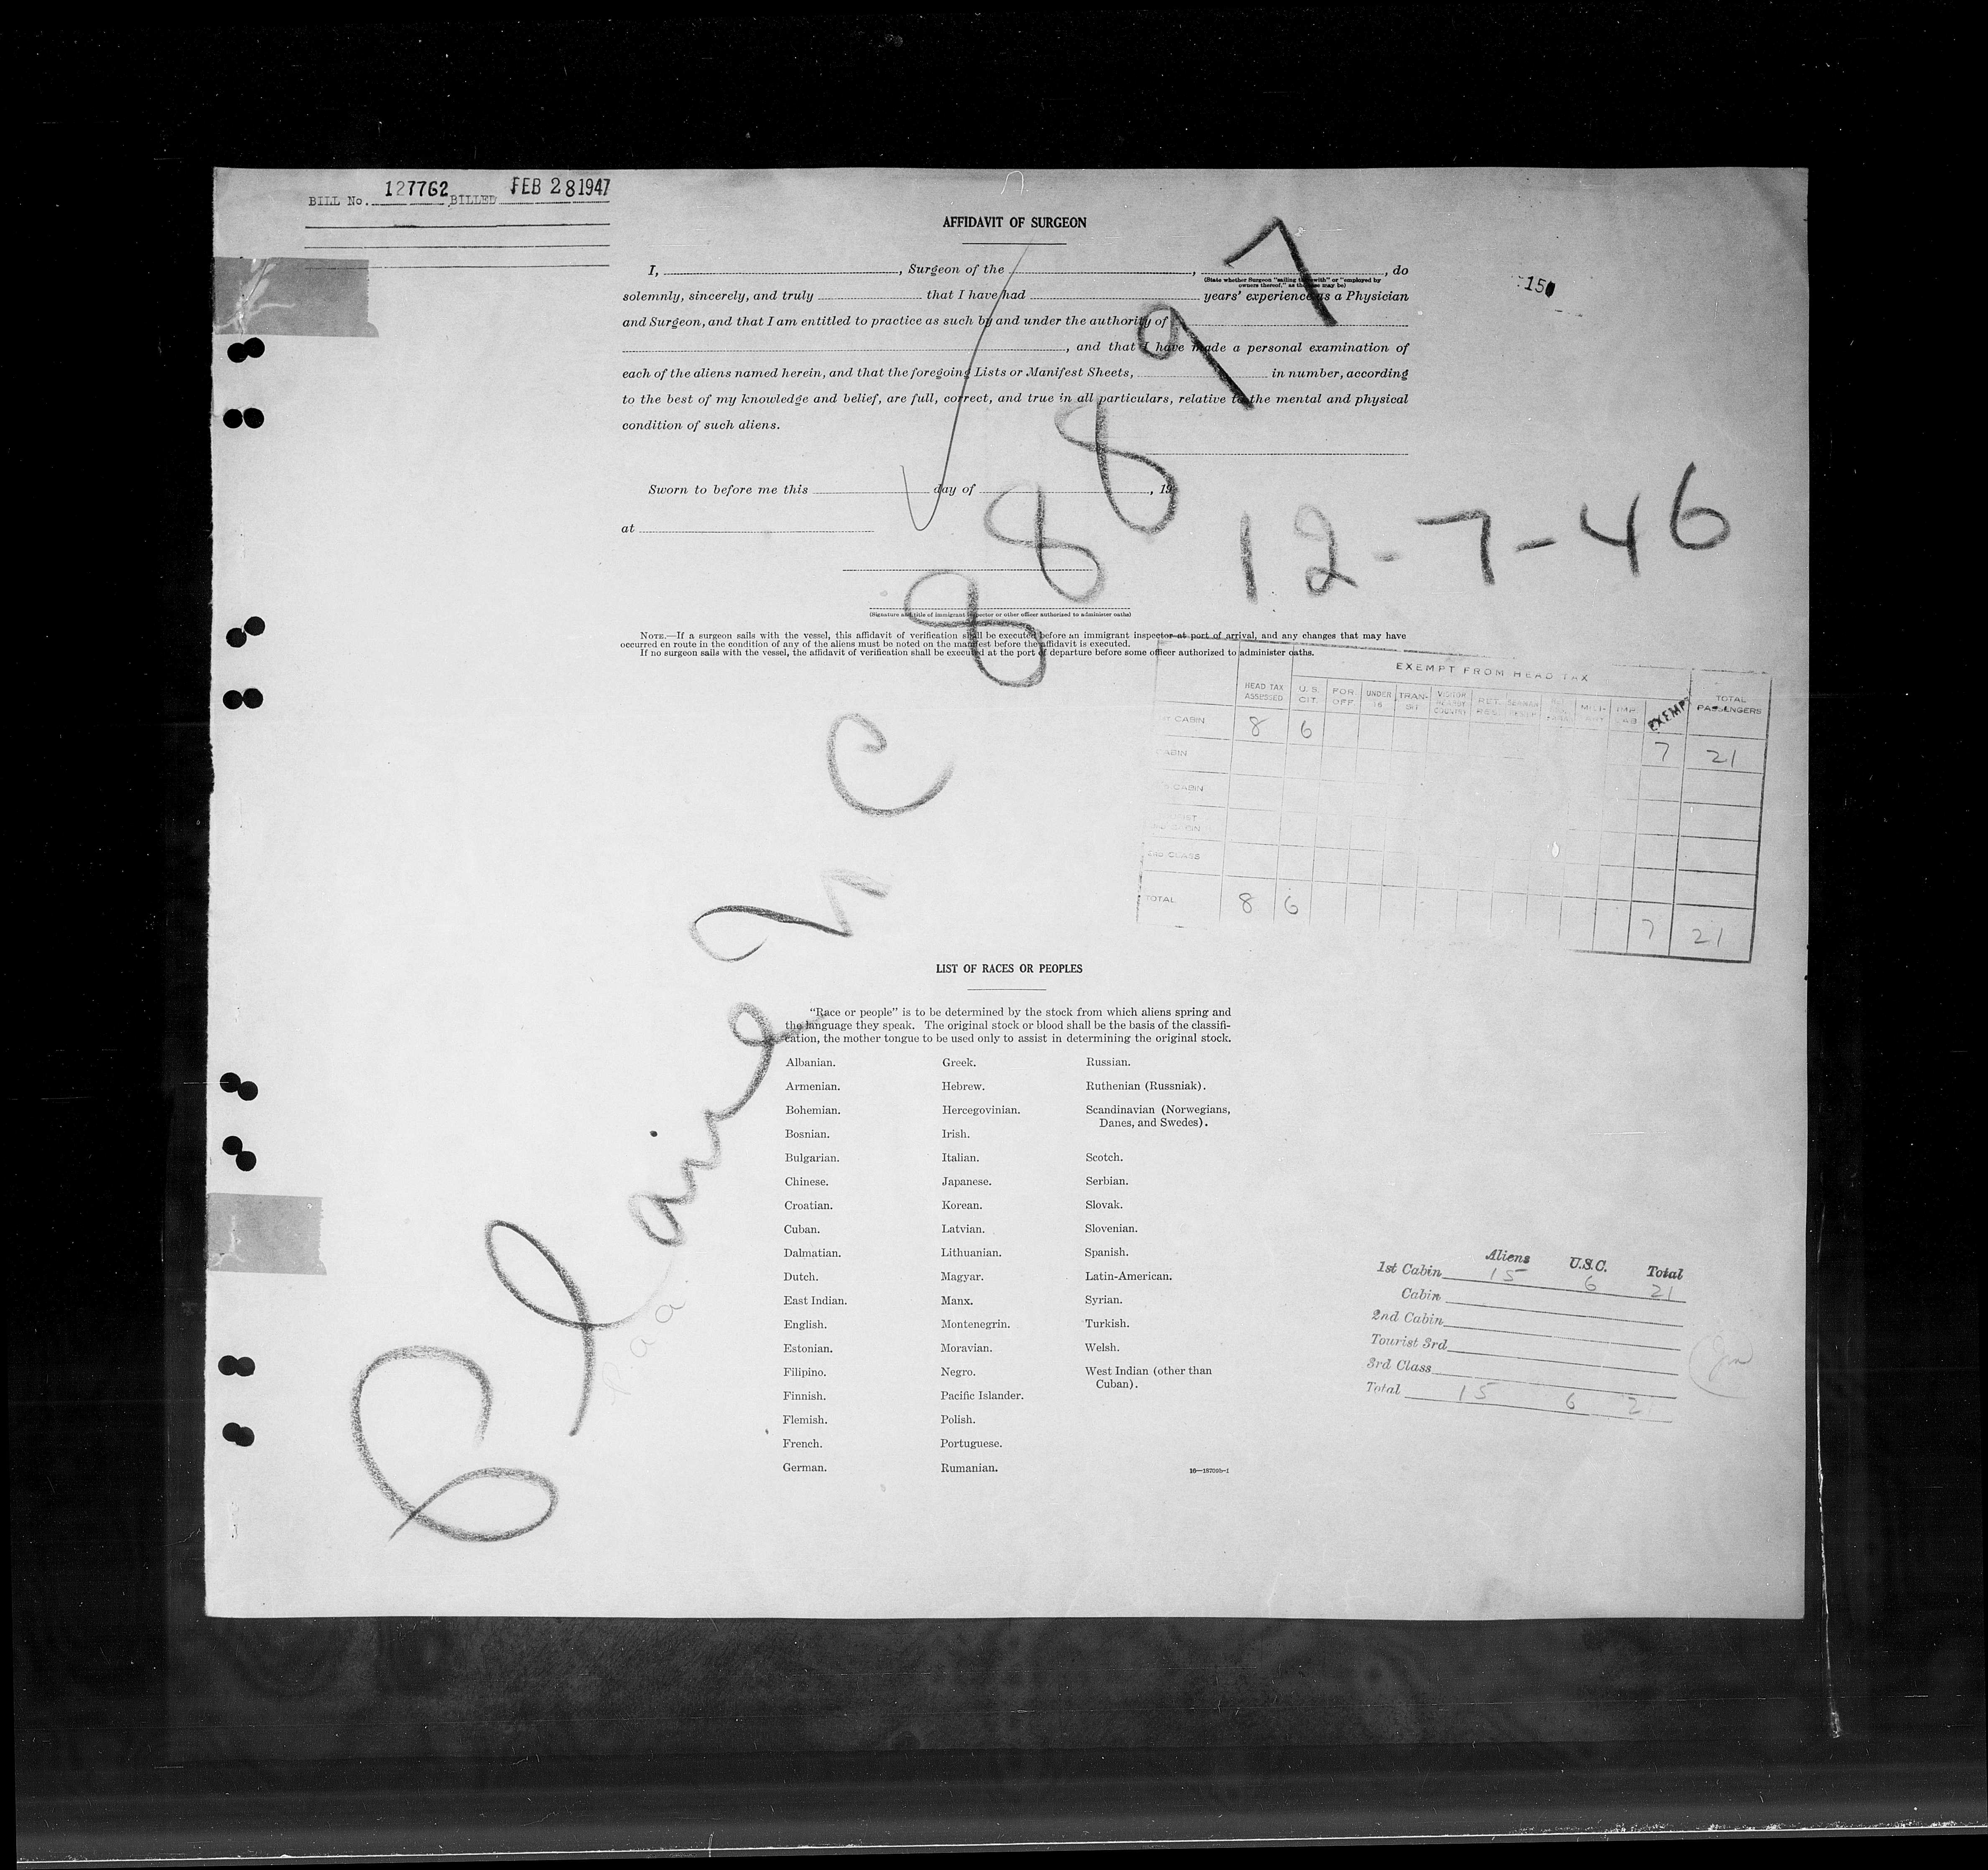 BILL No. 127762 BILLED FEB 28 1947
AFFIDAVIT OF SURGEON
I, , Surgeon of the , , do
(State whether Surgeon "sailing therewith" or "employed by
owners thereof," as the case may be)
150
solemnly, sincerely, and truly that I have had years' experience as a Physician
and Surgeon, and that I am entitled to practice as such by and under the authority of
, and that I have made a personal examination of
each of the aliens named herein, and that the foregoing Lists or Manifest Sheets, in number, according
to the best of my knowledge and belief, are full, correct, and true in all particulars, relative to the mental and physical
condition of such aliens.
Sworn to before me this day of , 19
at
(Signature and title of immigrant inspector or other officer authorized to administer oaths)
NOTE.—If a surgeon sails with the vessel, this affidavit of verification shall be executed before an immigrant inspector at port of arrival, and any changes that may have
occurred en route in the condition of any of the aliens must be noted on the manifest before the affidavit is executed.
If no surgeon sails with the vessel, the affidavit of verification shall be executed at the port of departure before some officer authorized to administer oaths.
Plane NC 88897
12-7-46
EXEMPT FROM HEAD TAX
HEAD TAX ASSESSED U.S. CIT. FOR. OFF. UNDER 16 TRAN- SIT VISITOR NEARBY COUNTRY RET. RES. MILI- EXEMPT TOTAL PASSENGERS
CABIN 8 6 7 21
CABIN
CABIN
CLASS
TOTAL 8 6 7 21
LIST OF RACES OR PEOPLES
"Race or people" is to be determined by the stock from which aliens spring and
the language they speak. The original stock or blood shall be the basis of the classifi-
cation, the mother tongue to be used only to assist in determining the original stock.
Albanian. Greek. Russian.
Armenian. Hebrew. Ruthenian (Russniak).
Bohemian. Hercegovinian. Scandinavian (Norwegians,
Danes, and Swedes).
Bosnian. Irish.
Bulgarian. Italian. Scotch.
Chinese. Japanese. Serbian.
Croatian. Korean. Slovak.
Cuban. Latvian. Slovenian.
Dalmatian. Lithuanian. Spanish.
Dutch. Magyar. Latin-American.
East Indian. Manx. Syrian.
English. Montenegrin. Turkish.
Estonian. Moravian. Welsh.
Filipino. Negro. West Indian (other than
Cuban).
Finnish. Pacific Islander.
Flemish. Polish.
French. Portuguese.
German. Rumanian.
Paa
Aliens U.S.C. Total
1st Cabin 15 6 21
Cabin
2nd Cabin
Tourist 3rd
3rd Class
Total 15 6 21